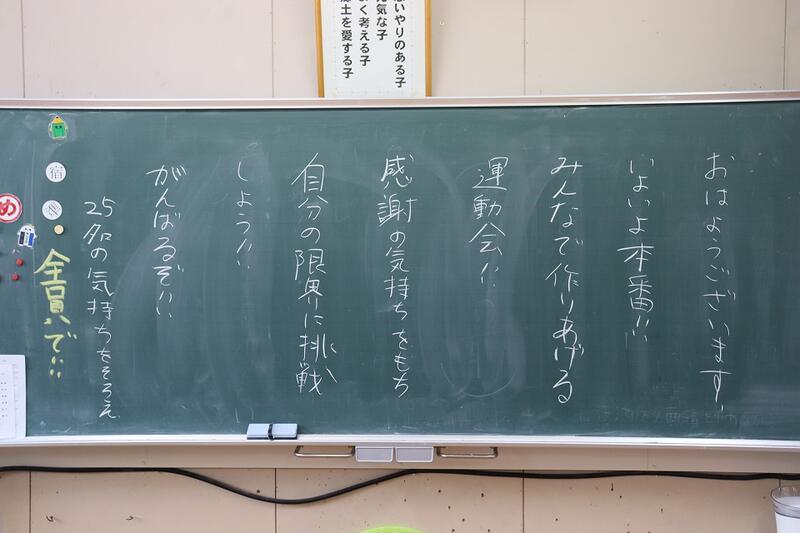 思いやりのある子
元気な子
よく考える子
郷土を愛する子
おはようございます。
いよいよ本番!!
みんなで作りあげる
運動会!!
感謝の気持ちをもち
自分の限界に挑戦
しよう!!
がんばるぞ!!
25名の気持ちをそろえ
全員で!!
宿
め